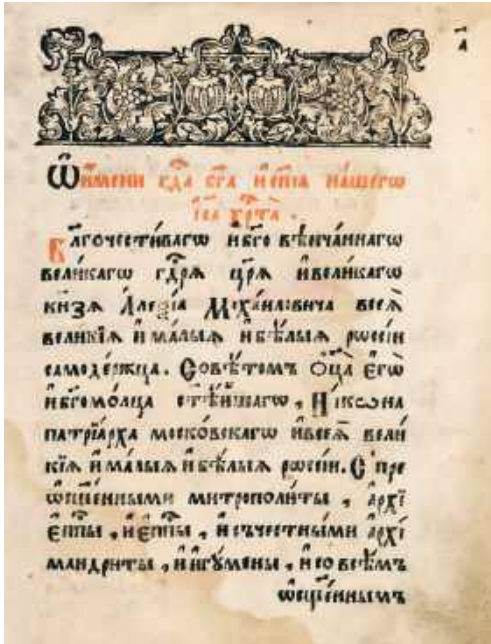 а҃
Ѡ имени гдⷭ҇а бг҃а и҆ сп҃са нашегѡ
і҆с҃а хрⷭ҇та̀ .
Бл҃гочести́вагѡ и҆ бг҃овѣнча́ннагѡ
вели́кагѡ гдⷭ҇рѧ цр҃ѧ̀ и҆ вели́кагѡ
кн҃зѧ А҆леѯі́а Миха́иловича всеѧ̀
вели́кїѧ и҆ ма́лыѧ и҆ бѣ́лыѧ рѡссі́и
самоде́ржца . Совѣ́томъ ѻ҆ц҃а̀ є҆гѡ̀
и҆ бг҃омо́лца ст҃ѣ́йшагѡ , Ни́кѡна
патрїа́рха моско́вскагѡ и҆ всеѧ̀ вели́
кїѧ и҆ ма́лыѧ и҆ бѣ́лыѧ рѡссі́и . С̾ пре
ѡ҆сщ҃е́нными митрополи́ты , а҆рхї
є҆пⷭ҇пы , и҆ є҆пⷭ҇пы , и҆ съ честны́ми а҆рхї
мандри́ты , и҆ и҆гꙋ́мены , и҆ со всѣ́мъ
ѡ҆сщ҃е́ннымъ